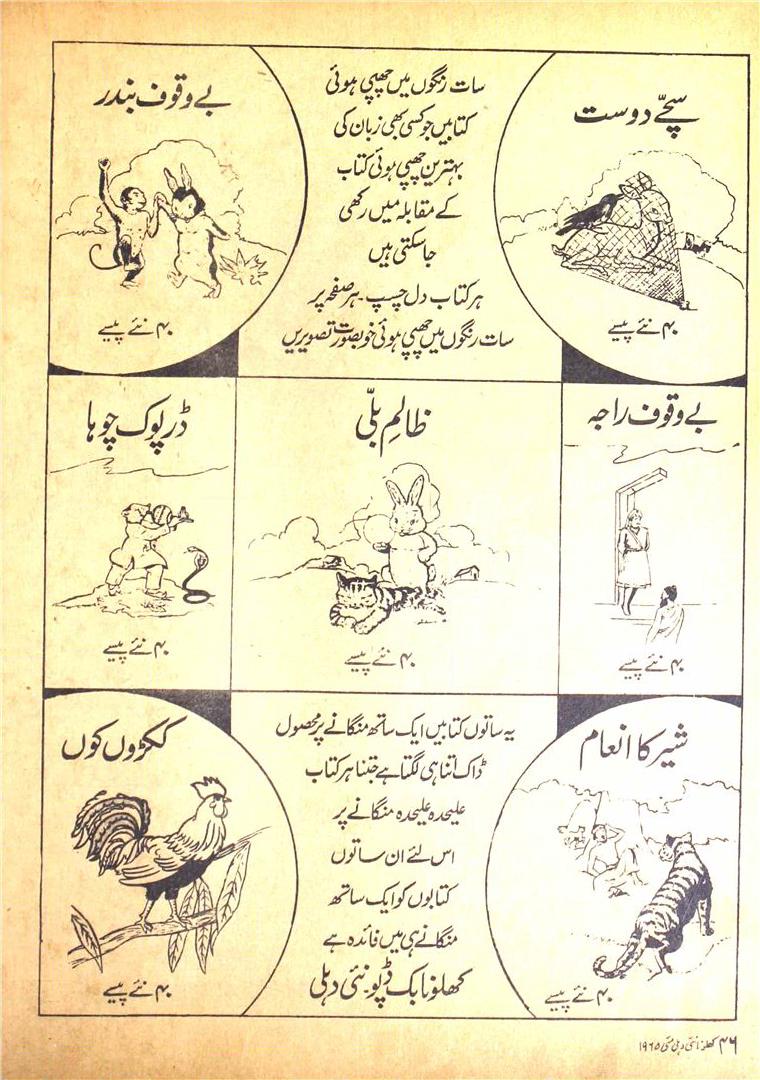 سچّے دوست
۴۰ نئے پیسے
سات رنگوں میں چھپی ہوئی
کتابیں جو کسی بھی زبان کی
بہترین چھپی ہوئی کتاب
کے مقابلہ میں رکھی
جا سکتی ہیں
ہر کتاب دل چسپ۔ ہر صفحہ پر
سات رنگوں میں چھپی ہوئی خوبصورت تصویریں
بے وقوف بندر
۴۰ نئے پیسے
بے وقوف راجہ
۴۰ نئے پیسے
ظالم بلّی
۴۰ نئے پیسے
ڈرپوک چوہا
۴۰ نئے پیسے
شیر کا انعام
۴۰ نئے پیسے
یہ ساتوں کتابیں ایک ساتھ منگانے پر محصول
ڈاک اتنا ہی لگتا ہے جتنا ہر کتاب
علیحدہ علیحدہ منگانے پر
اس لئے ان ساتوں
کتابوں کو ایک ساتھ
منگانے ہی میں فائدہ ہے
کھلونا بک ڈپو۔ نئی دہلی
ککڑوں کوں
۴۰ نئے پیسے
۴۶ کھلونا نئی دہلی مئی ۱۹۶۵